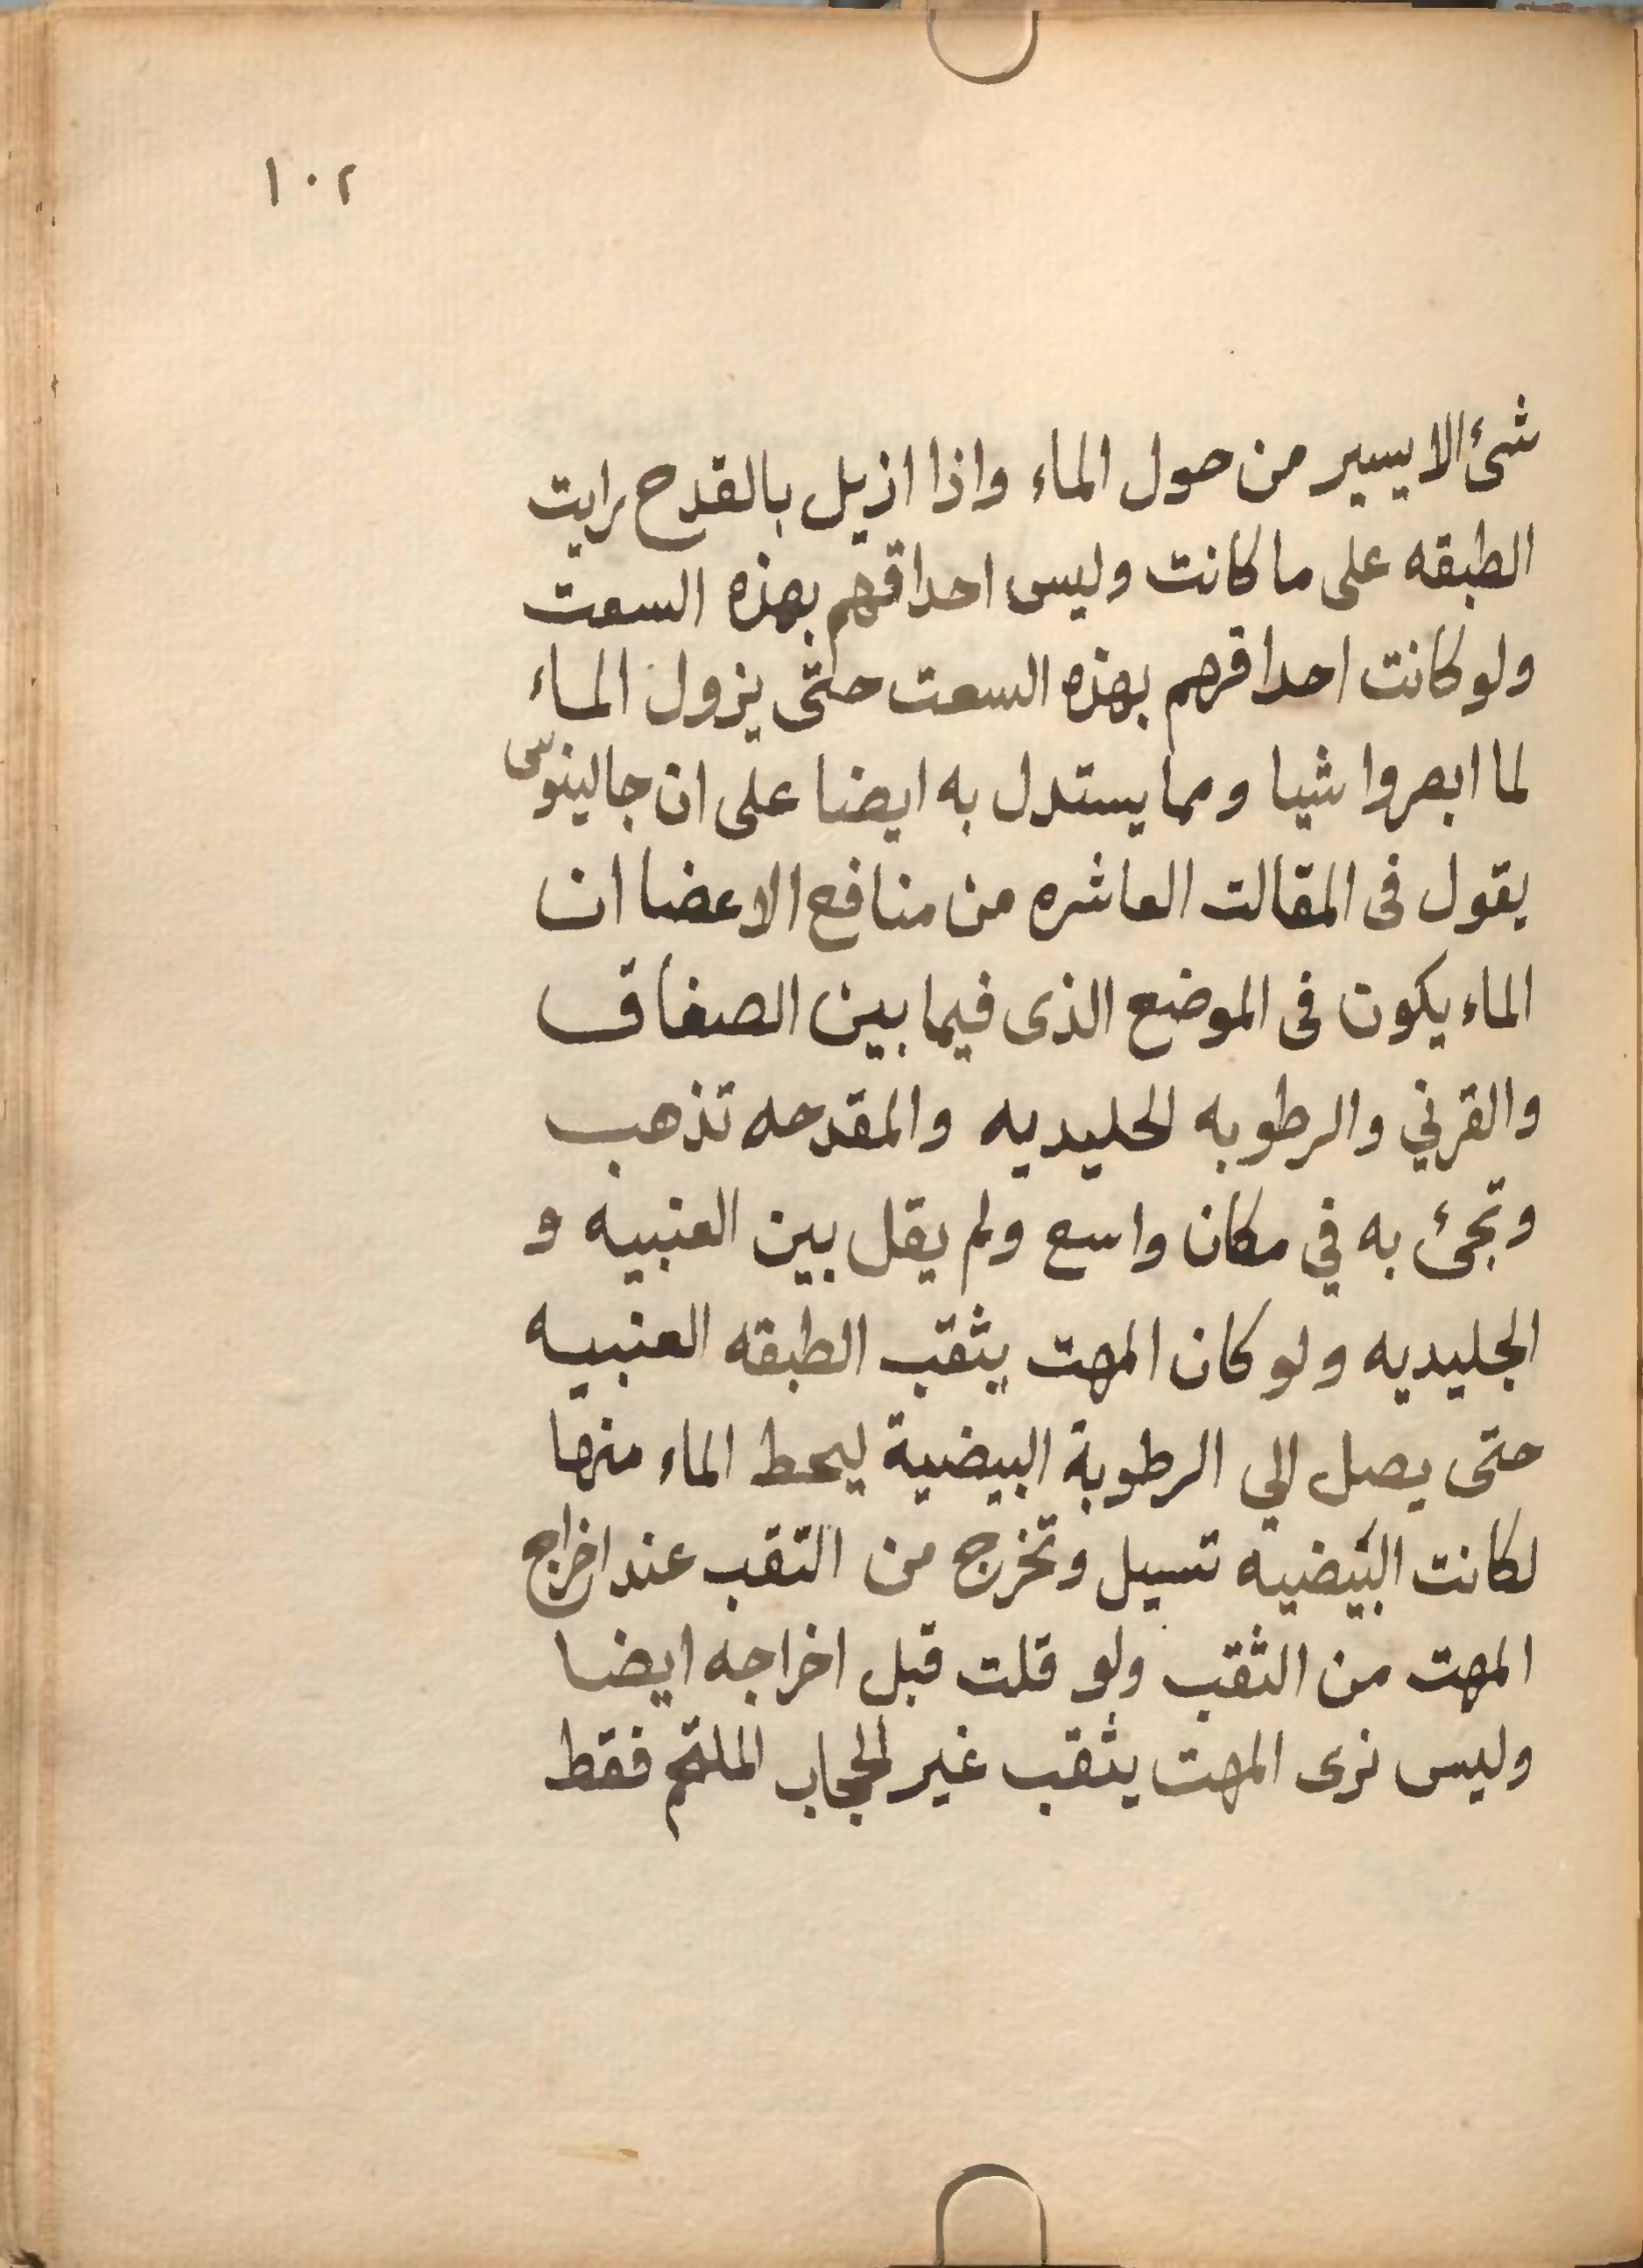 ١٠٢
شئ الا يسير من حول الماء واذا ازيل بالقدح رايت
الطبقه على ما كانت وليس احداقهم بهذه السعت
ولو كانت احداقهم بهذه السعت حتى يزول الماء
لما ابصروا شيا ومما يستدل به ايضا على ان جالينوس
يقول فى المقالت العاشره من منافع الاعضا ان
الماء يكون فى الموضع الذى فيما بين الصفاق
والقرني والرطوبه الحليديه والمقدحه تذهب
وتجئ به في مكان واسع ولم يقل بين العنبيه و
الجليديه ولو كان المهت يثقب الطبقه العنبيه
حتى يصل الي الرطوبة البيضية ليحط الماء منها
لكانت البيضيه تسيل وتخرج من التقب عند اخراج
المهت من الثقب ولو قلت قبل اخراجه ايضا
وليس نرى المهت يثقب غير الحجاب الملتحم فقط